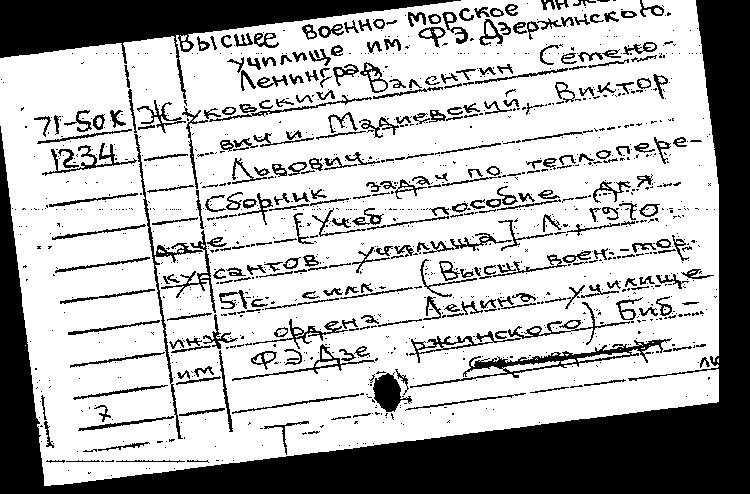 Высшее Военно-Морское инже
училище им. Ф.Э.Дзержинского.
Ленинград.
71-50к Жуковский, Валентин Семено-
1234 вич и Мадиевский, Виктор
Львович.
Сборник задач по теплопере-
даче. [Учеб. пособие для
курсантов училища] Л., 1970.
51с. с илл. (Высш. воен.-мор.
инж. ордена Ленина училище
им Ф.Э.Дзержинского). Биб-
лю